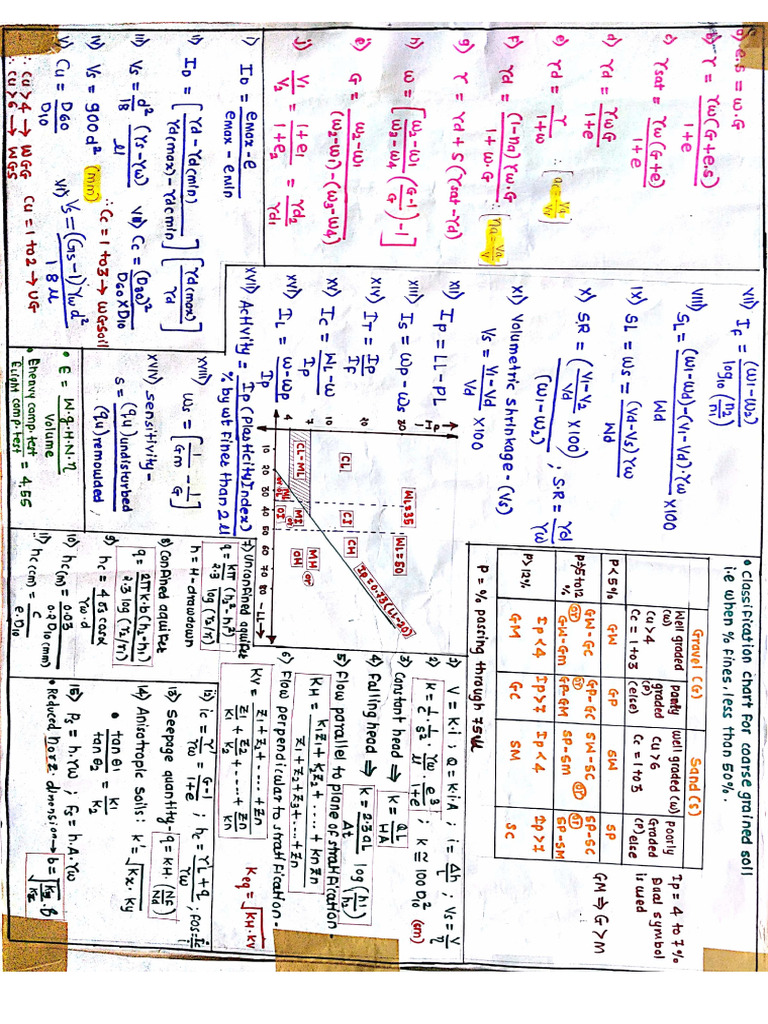 a) e.s = ω.G
b) γ = γω(G+e.s) / 1+e
c) γsat = γω(G+e) / 1+e
d) γd = γωG / 1+e
e) γd = γ / 1+ω
f) γd = (1-na)γω.G / 1+ω.G
∴ [na = Va/V]
g) γ = γd + S(γsat-γd)
h) ω = [ (ω2-ω1)/(ω3-ω4) (G-1 / G) - 1 ]
i) G = ω2-ω1 / (ω2-ω1)-(ω3-ω4)
j) V1/V2 = 1+e1 / 1+e2 = γd2 / γd1
i) ID = emax-e / emax-emin
ii) ID = [ γd-γd(min) / γd(max)-γd(min) ] [ γd(max) / γd ]
iii) Vs = d²/18 (γs-γω) / μ
iv) Vs = 900d² (mm)
v) Cu = D60 / D10
∴ Cu>4 → WGG
∴ Cu>6 → WGS
Cu = 1 to 2 → UG
vi) Vs = (Gs-1)γωd² / 18μ
vii) Cc = (D30)² / D60×D10
∴ Cc = 1 to 3 → WGSoil
viii) If = (ω1-ω2) / log10 (n2/n1)
viii) SL = (ω1-ωd)-(V1-Vd).γω / Wd ×100
ix) SL = ωs = (Vd-Vs)γω / Wd
x) SR = (V1-V2 / Vd ×100) / (ω1-ω2) ; SR = γd / γω
xi) Volumetric shrinkage - (Vs)
Vs = V1-Vd / Vd ×100
xii) Ip = LL-PL
xiii) Is = ωp-ωs
xiv) IT = Ip / If
xv) Ic = WL-ω / Ip
xvi) IL = ω-ωp / Ip
xvii) Activity = Ip (Plasticity Index) / % by wt finer than 2μ
xviii) ωs = [ 1/Gm - 1/G ]
xviii) Sensitivity -
S = (qu)undisturbed / (qu)remoulded
• E = W.g.H.N.η / Volume
• Eheavy comp test / Elight comp test = 4.55
Ip
20
10
7
4
10 20 30 40 50 60 70 80 -LL→
WL=35
WL=50
CL
CI
CH
CL-ML
ML or OL
MI or OI
MH or OH
Ip=0.73(LL-20)
• Classification chart for coarse grained soil
i.e when % fines, less than 50%.
Gravel (G) Sand (S)
Well graded (W) Cu>4 Cc = 1 to 3
Poorly graded (P) (else)
well graded (W) Cu>6 Cc = 1 to 3
Poorly Graded (P) else
P<5% GW GP SW SP
P=5 to 12 % GW-GC or GW-GM GP-GC or GP-GM SW-SC or SW-SM SP-SC or SP-SM
P>12% Ip<4 GM Ip>7 GC Ip<4 SM Ip>7 SC
Ip = 4 to 7 %
Dual symbol
is used
GM ⇒ G>M
P = % passing through 75μ
1) V = k.i ; Q = k.i.A ; i = Δh / L ; Vs = V / η
2) k = 1/C . 1/S² . γω/μ . e³/1+e ; k ≅ 100 D²10 (cm)
3) Constant head ⇒ k = QL / HA
4) Falling head ⇒ k = 2.3aL / At log(h1/h2)
5) Flow parallel to plane of stratification -
KH = K1Z1+K2Z2+....+KnZn / Z1+Z2+Z3+....+Zn
6) Flow perpendicular to stratification -
KV = Z1+Z2+....+Zn / Z1/K1 + Z2/K2 +....+ Zn/Kn
Keq = √KH.KV
7) Unconfined aquifer
q = kπ (h2²-h1²) / 2.3 log(r2/r1)
h = H-drawdown
8) Confined aquifer
q = 2πk.b(h2-h1) / 2.3 log(r2/r1)
9) hc = 4σcosα / γω.d
10) hc(m) = 0.03 / 0.2 D10(mm)
11) hc(cm) = C / e.D10
12) ic = γ' / γω = G-1 / 1+e ; hc = γ'L+q / γω ; FOS = ic / i
13) Seepage quantity - q = KH.(Nf/Nd)
14) Anisotropic soils: k' = √Kx.Ky
• tanθ1 / tanθ2 = K1 / K2
15) Ps = h.γω ; Fs = h.A.γω
• Reduced horz. dimension → b =